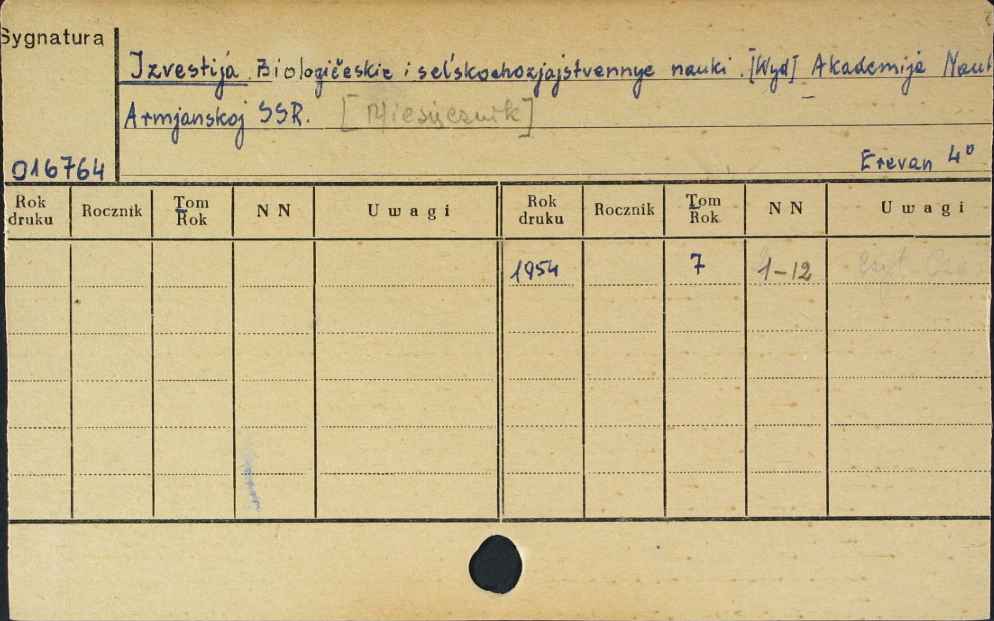 Sygnatura
Izvestija. Biologičeskie i sel'skochozjajstvennye nauki. [Wyd] Akademija Nauk
Armjanskoj SSR. [Miesięcznik]
016764
Erevan 4°
Rok druku Rocznik Tom Rok NN Uwagi Rok druku Rocznik Tom Rok NN Uwagi
1954 7 1-12